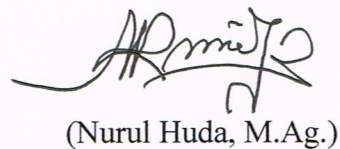 (Nurul Huda, M.Ag.)